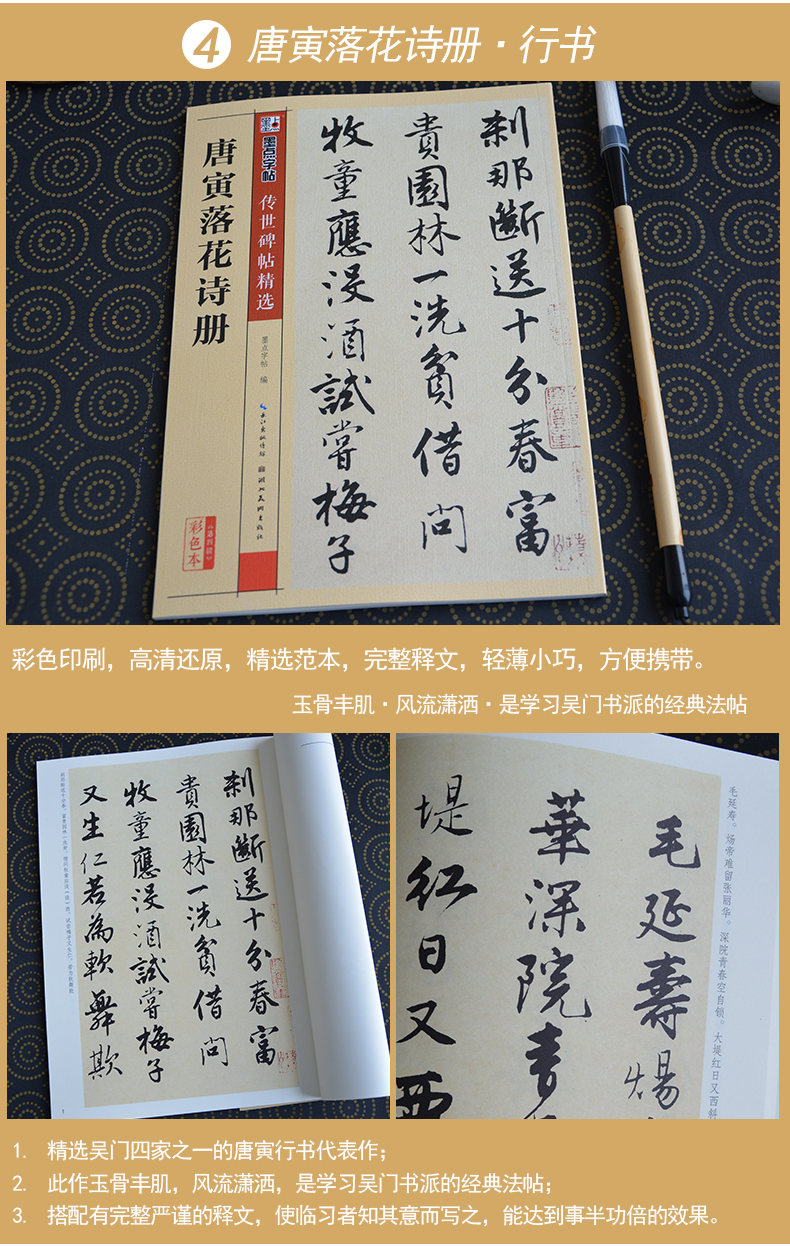 4 唐寅落花诗册·行书
唐寅落花诗册
墨点字帖
传世碑帖精选
墨点字� 编
长江出版传媒
湖北美术出版社
彩色本
《第四辑》
剎那斷送十分春富
貴園林一洗貧借问
牧童應没酒試嘗梅子
彩色印刷，高清还原，精选范本，完整释文，轻薄小巧，方便携带。
玉骨丰肌·风流潇洒·是学习吴门书派的经典法帖
剎那斷送十分春富
貴園林一洗貧借问
牧童應没酒試嘗梅子
又生仁若為軟舞欺
毛延寿。炀帝难留张丽华。深院青春空自锁。大堤红日又西斜
毛延壽煬
華深院青
堤红日又西
1. 精选吴门四家之一的唐寅行书代表作；
2. 此作玉骨丰肌，风流潇洒，是学习吴门书派的经典法帖；
3. 搭配有完整严谨的释文，使临习者知其意而写之，能达到事半功倍的效果。